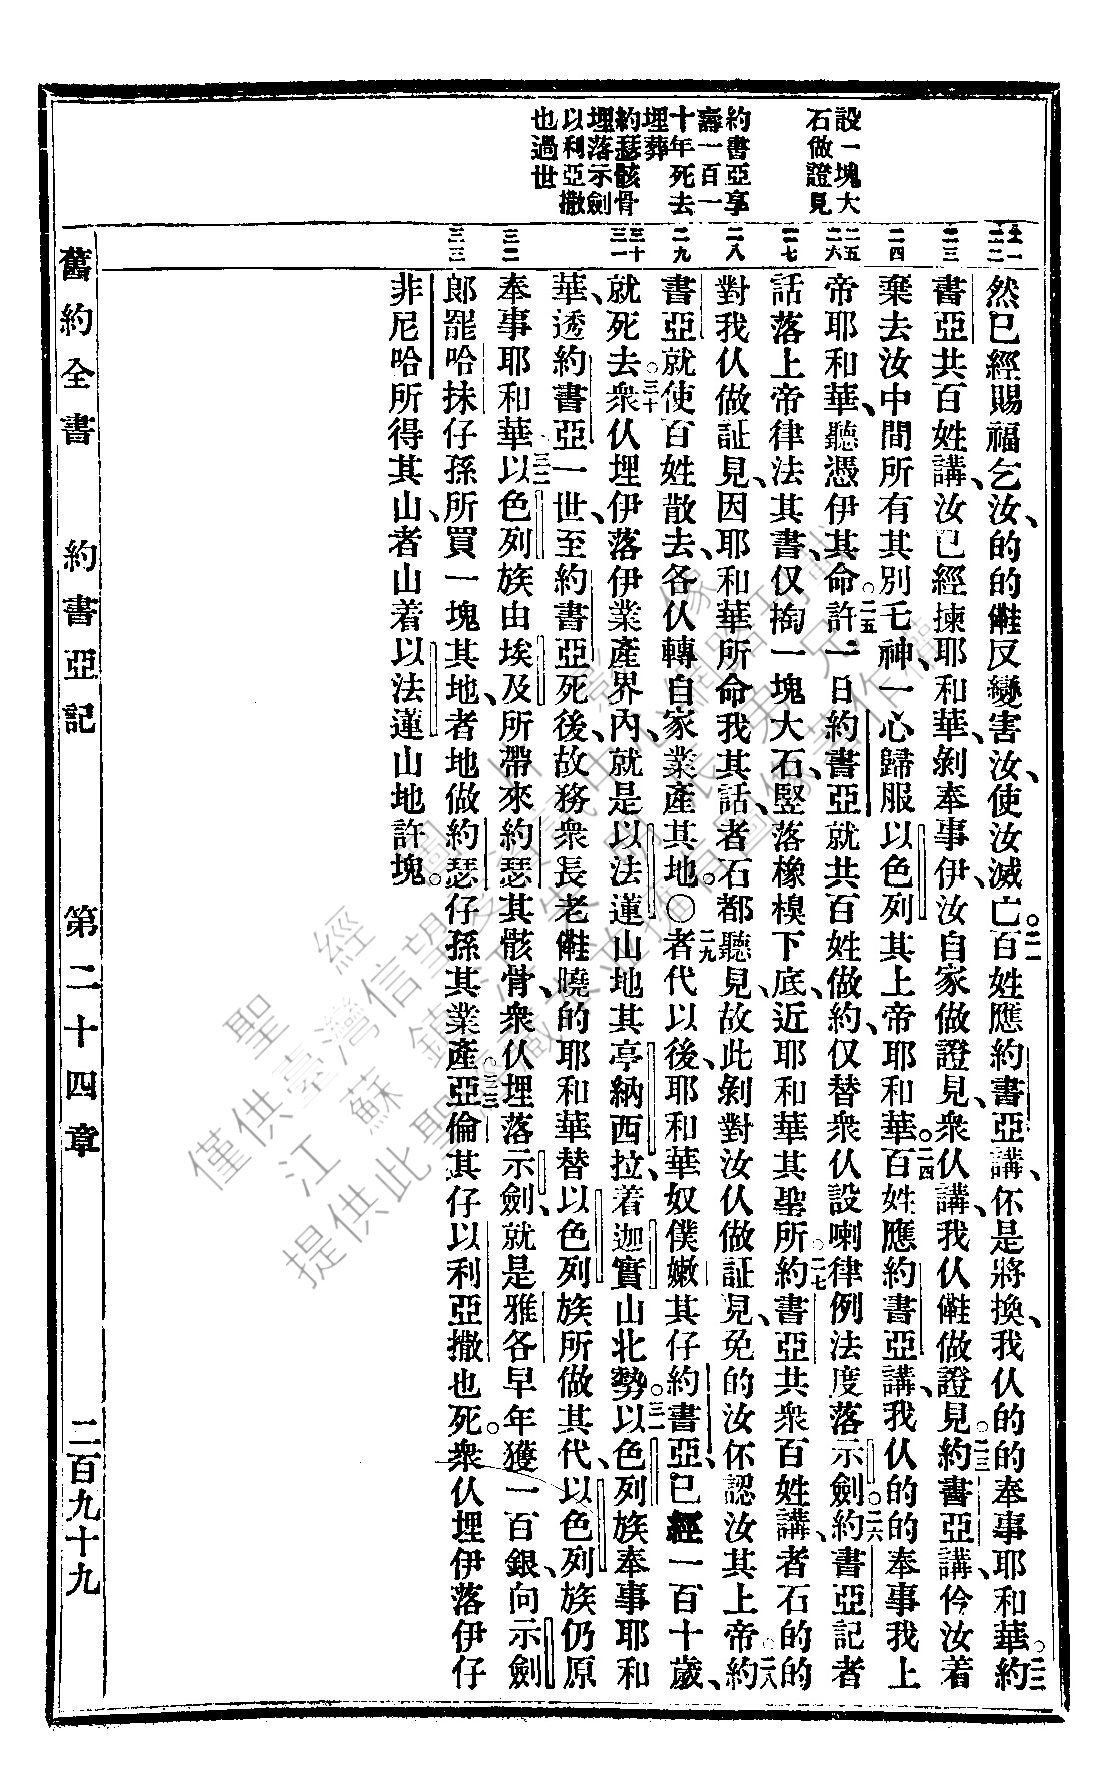 設一塊大
石做證見
約書亞享
壽一百一
十年死去
埋葬
約瑟骸骨
埋落示劍
以利亞撒
也過世
二一
二二
二三
二四
二五
二六
二七
二八
二九
三十
三一
三二
三三
然已經賜福乞汝、的的僫反變害汝、使汝滅亡。二一百姓應約書亞講、伓是將換、我仈的的奉事耶和華。二二約
書亞共百姓講、汝已經揀耶和華、剝奉事伊、汝自家做證見、衆仈講、我仈僫做證見。二三約書亞講、仱汝着
棄去汝中間所有其別乇神、一心歸服以色列其上帝耶和華。二四百姓應約書亞講、我仈的的奉事我上
帝耶和華、聽憑伊其命。二五許一日約書亞就共百姓做約、仅替衆仈設喇律例法度落示劍。二六約書亞記者
話落上帝律法其書、仅掏一塊大石、堅落橡模下底、近耶和華其聖所。二七約書亞共衆百姓講、者石的的
對我仈做証見、因耶和華所命我其話、者石都聽見、故此剝對汝仈做証見、免的汝伓認汝其上帝。二八約
書亞就使百姓散去、各仈轉自家業產其地。○二九者代以後、耶和華奴僕嫩其仔約書亞、已經一百十歲、
就死去。三十衆仈埋伊落伊業產界內、就是以法蓮山地其亭納西拉、着迦實山北勢。三一以色列族奉事耶和
華、透約書亞一世、至約書亞死後、故務衆長老僫曉的耶和華替以色列族所做其代、以色列族仍原
奉事耶和華。三二以色列族由埃及所帶來約瑟其骸骨、衆仈埋落示劍、就是雅各早年獲一百銀向示劍
郎罷哈抹仔孫所買一塊其地、者地做約瑟仔孫其業產。三三亞倫其仔以利亞撒也死。衆仈埋伊落伊仔
非尼哈所得其山、者山着以法蓮山地許塊。
舊約全書 約書亞記 第二十四章 二百九十九
聖經圖
僅供臺灣信望愛
江蘇鎮江
提供此聖經